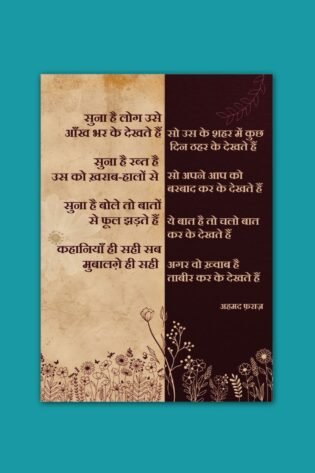 सुना है लोग उसे
आँख भर के देखते हैं
सो उस के शहर में कुछ
दिन ठहर के देखते हैं
सुना है रब्त है
उस को ख़राब-हालों से
सो अपने आप को
बरबाद कर के देखते हैं
सुना है बोले तो बातों
से फूल झड़ते हैं
ये बात है तो चलो बात
कर के देखते हैं
कहानियाँ ही सही सब
मुबालग़े ही सही
अगर वो ख़्वाब है
ताबीर कर के देखते हैं
अहमद फ़राज़